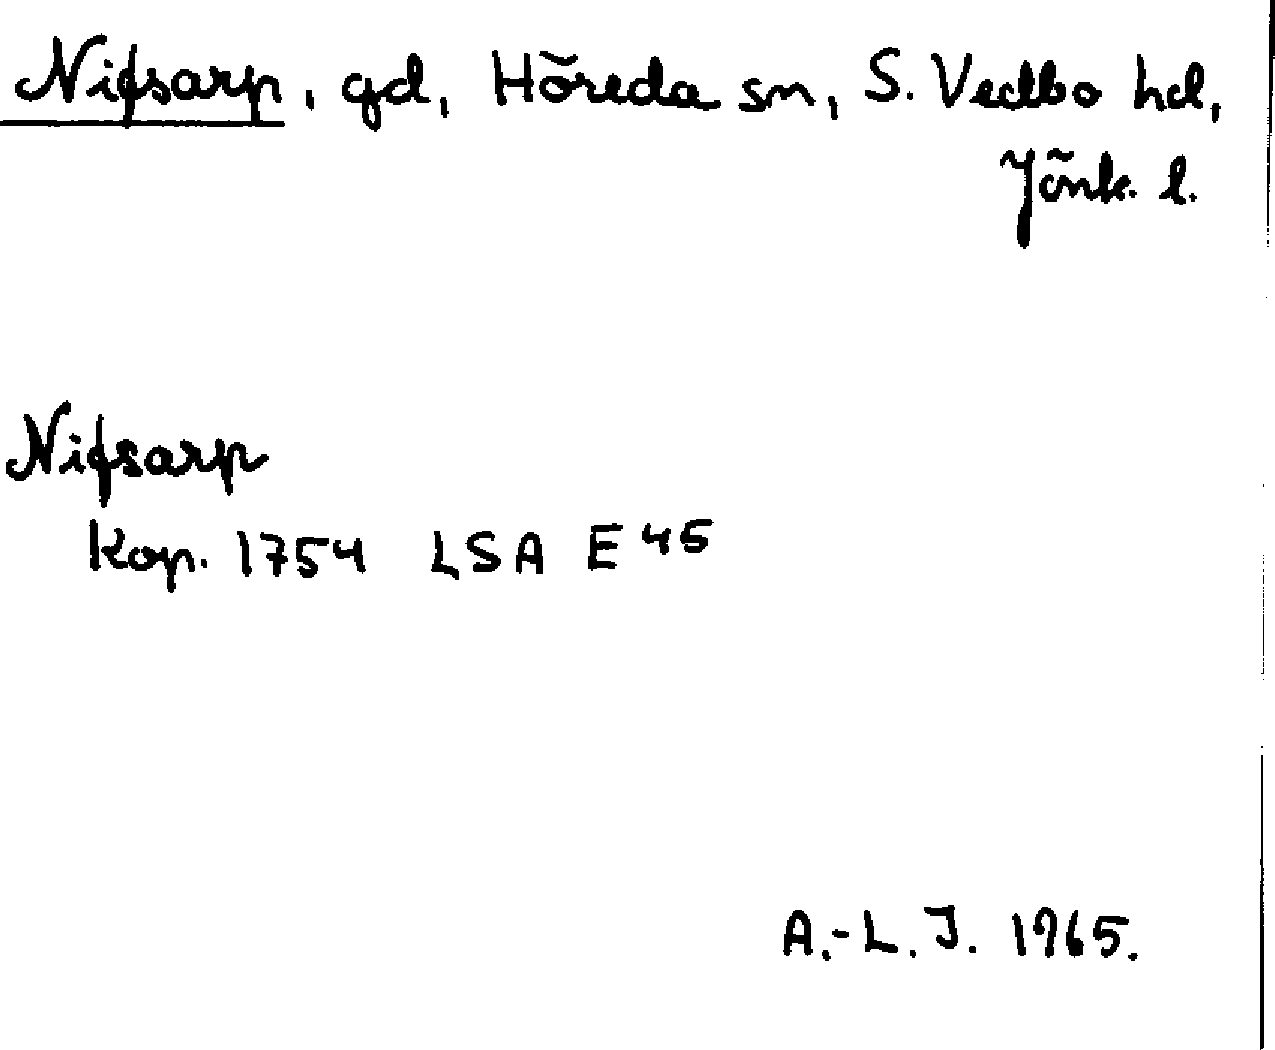 Nifsarp, gd, Höreda sn, S. Vedbo hd,
Jönk. l.
Nifsarp
Kop. 1754 LSA E 45
A.-L. J. 1965.